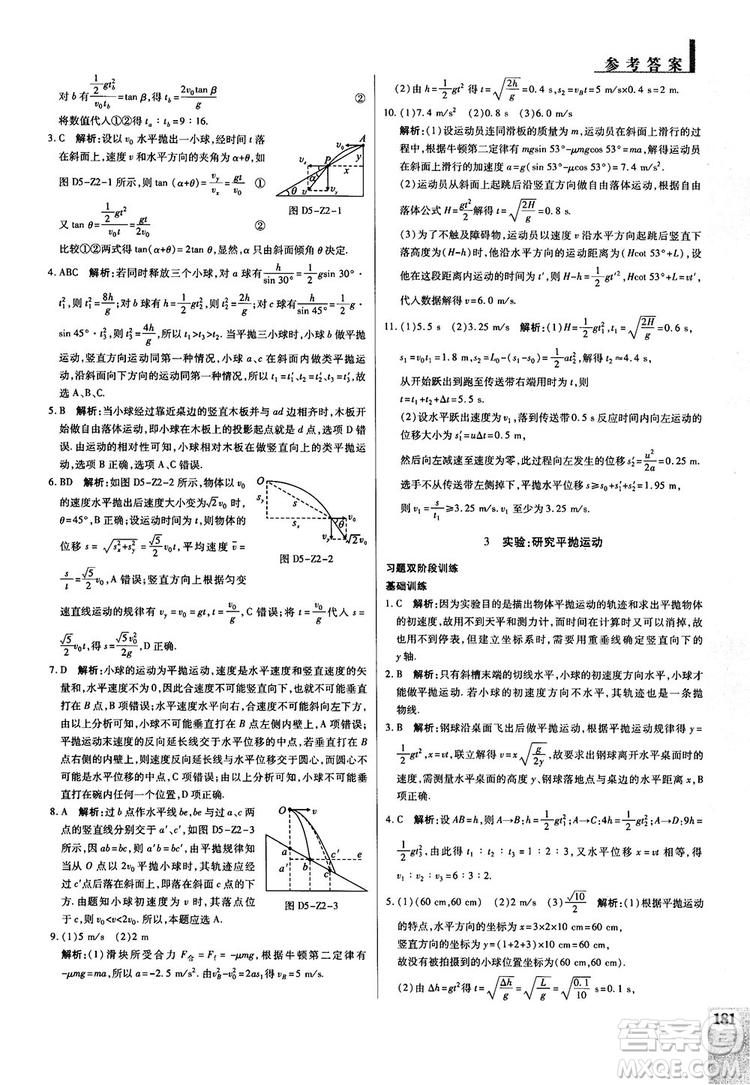 参考答案
对 b 有 \frac{\frac{1}{2}gt_b^2}{v_0t_b}=tan β,得 t_b=\frac{2v_0tan β}{g} ②
将数值代人①②得 t_a:t_b=9:16.
3. C 解析:设以 v_0 水平抛出一小球,经时间 t 落
在斜面上,速度和水平方向的夹角为 α+θ,如
图 D5-Z2-1 所示,则 tan (α+θ)=\frac{v_y}{v_x}=\frac{gt}{v_0} ①
又 tan θ=\frac{\frac{1}{2}gt^2}{v_0t}=\frac{gt}{2v_0} ②
A
v_x
P
α
v_y
v
θ
图 D5-Z2-1
比较①②两式得 tan(α+θ)=2tan θ,显然,α 只由斜面倾角 θ 决定.
4. ABC 解析:若同时释放三个小球,对 a 球有\frac{h}{sin 30°}=\frac{1}{2}gsin 30°
·t_1^2,t_1^2=\frac{8h}{g};对 b 球有 h=\frac{1}{2}gt_2^2,t_2^2=\frac{2h}{g};对 c 球有\frac{h}{sin 45°}=\frac{1}{2}g
sin 45°·t_3^2,t_3^2=\frac{4h}{g},所以 t_1>t_3>t_2.当平抛三小球时,小球 b 做平抛
运动,竖直方向运动同第一种情况,小球 a、c 在斜面内做类平抛运
动,沿斜面向下方向的运动同第一种情况,所以 t_1=t_1′,t_2=t_2′,t_3=t_3′.故
选 A、B、C.
5. B 解析:当小球经过靠近桌边的竖直木板并与 ad 边相切时,木板开
始做自由落体运动,即小球在木板上的投影起点就是 d 点,A、D 错
误.由运动的相对性可知,小球相对木板在做竖直向上的类平抛运
动,B 正确,C 错误.
6. BD 解析:如图 D5-Z2-2 所示,以 v_0
的速度水平抛出后速度大小变为\sqrt{2}v_0时,
θ=45°.设运动时间为 t,则在这段时间内的
位移 s=\sqrt{s_x^2+s_y^2}=\frac{\sqrt{5}}{2}v_0t,平均速度 \bar{v}=
\frac{s}{t}=\frac{\sqrt{5}}{2}v_0,A、C 错误.由于竖直方向做匀加
s
s_y
s_x
v_0
θ
v_y
\sqrt{2}v_0
图 D5-Z2-2
速直线运动,故 v_y=v_0=gt,t=\frac{v_0}{g},将 t=\frac{v_0}{g}代人 s=
\frac{\sqrt{5}}{2}v_0t,得 s=\frac{\sqrt{5}v_0^2}{2g},B、D 正确.
7. D 解析:小球的运动为平抛运动,末速度是水平速度和竖直速度的矢
量和,水平速度越大,末速度与竖直方向的夹角越大,故不可能所有小球
都垂直打在 B 点所在圆弧的切面上,也不可能竖直向下打在 B 点,A、B
错误.打在 B 点左侧的小球不可能与圆弧切面垂直,打在 B 点右侧时,因
平抛运动末速度的反向延长线交于水平位移的中点,而垂直打在圆弧切
面上的速度的反向延长线交于圆心,而圆心不可能为水平位移的中点,故
C 错误.小球打在碗内不同位置,下落的高度可能相同,飞行时间可能
相同,D 正确.
8. A 解析:过 b 点作水平线 be,be 与过 a、c 两
点的竖直线分别交于 a′、c′,如图 D5-Z2-3
所示,因 a′b=bc′,故若小球抛出后落在 c′点,
则它从 O 点抛出时的速度必为 2v_0,即当小
球从 O 点以 2v_0 水平抛出时,其轨迹应经过
c′点,即落在斜面上的 b、c 之间.综上所述,
欲使小球落在 c 点,则小球初速度为 v 时,
O
a′
b
c′
e
a
c
图 D5-Z2-3
必有 v_0<v<2v_0,所以本题应选 A.
9. (1)5 m/s (2)2 m
解析:(1)滑块所受合力 F_合=F_f=-μmg,根据牛顿第二定律有
-μmg=ma,所以 a=-2.5 m/s^2,v_B^2-v_0^2=2as_1得 v_B=5 m/s.
(2)由 h=\frac{1}{2}gt^2 得 t=\sqrt{\frac{2h}{g}}=0.4 s,s_2=v_Bt=5×0.4 m=2 m.
10. (1)7.4 m/s^2 (2)0.8 s (3)6.0 m/s
解析:(1)设运动员连同滑板的质量为 m,运动员在斜面上滑行的过
程中,根据牛顿第二定律有 mgsin 53°-μmgcos 53°=ma,解得运动员
在斜面上滑行的加速度 a=g(sin 53°-μcos 53°)=7.4 m/s^2.
(2)运动员从斜面上起跳后沿竖直方向做自由落体运动,根据自由
落体公式H=\frac{1}{2}gt^2解得 t=\sqrt{\frac{2H}{g}}=0.8 s.
(3)为了不触及障碍物,运动员以速度 v 沿水平方向起跳后竖直下
落高度为(H-h)时,他沿水平方向运动的距离至少为(Hcot 53°+L),
设他在这段距离内运动的时间为 t′,则 H-h=\frac{1}{2}gt′^2,Hcot 53°+L=vt′,
代人数据解得 v=6.0 m/s.
11. (1)5.5 s (2)3.25 m/s 解析:(1)H=\frac{1}{2}gt_1^2,t_1=\sqrt{\frac{2H}{g}}=0.6 s,
s_1=v_0t_1=1.8 m,s_2=L_0-s_1=\frac{1}{2}at_2^2 得 t_2≈4.9 s,
则从开始到选手到达传送带右端用时为 t,则
t=t_1+t_2=5.5 s.
(2)设水平跃出速度为 v_1,落到传送带 0.5 s 反应时间内向左运动的
位移大小 s_1′=uΔt=0.5 m,
然后向左减速至速度为零,设该过程向左发生的位移 s_2′=\frac{u^2}{2a}
选手不从传送带左侧掉下,平抛水平位移 s≥s_1′+s_2′=1.95 m,
则 v_1=\frac{s}{t_1}≥\frac{1.95}{0.6} m/s=3.25 m/s,所以 v_1 至少为 3.25 m/s.
3 实验:研究平抛运动
习题双阶段训练
基础训练
1. C 解析:因为实验目的是描出物体平抛运动的轨迹和求出平抛物体
的初速度,故不用天平和测力计,而时间在计算时又可以消掉,故
也不用到停表,但建立坐标系时,需要用重垂线确定竖直方向的
y 轴.
2. B 解析:只有斜槽末端的切线水平,小球的初速度方向才水平,小球才
能做平抛运动.若小球的初速度方向不水平,其轨迹也是一条抛
物线.
3. B 解析:钢球沿桌面飞出后做平抛运动,根据平抛运动规律得 y=
\frac{1}{2}gt^2,x=vt,联立解得 v=x\sqrt{\frac{g}{2y}},故欲求出钢球离开桌面时的速
度只需测出桌面的高度、钢球落地点与桌边的水平距离即可,故
B 正确.
4. C 解析:设 AB=h,则 A→B:h=\frac{1}{2}gt_1^2,A→C:4h=\frac{1}{2}gt_2^2,A→D:9h=
\frac{1}{2}gt_3^2,联立解得 t_1:t_2:t_3=1:2:3,又因水平位移 x=vt 知
C 正确.
5. (1)(60 cm,60 cm) (2)\frac{\sqrt{10}}{2} (3)\frac{\sqrt{10}}{10} 解析:(1)根据平抛运动
的特点,水平方向的坐标为 x=3×2×10 cm=60 cm
竖直方向的坐标为 y=(1+2+3)×10 cm=60 cm
故没有被拍摄到的小球位置坐标为(60 cm,60 cm).
(2)由 Δh=gt^2 得 t=\sqrt{\frac{Δh}{g}}=\sqrt{\frac{0.1}{10}} s=0.1 s
181
答案圈
MXQE.COM